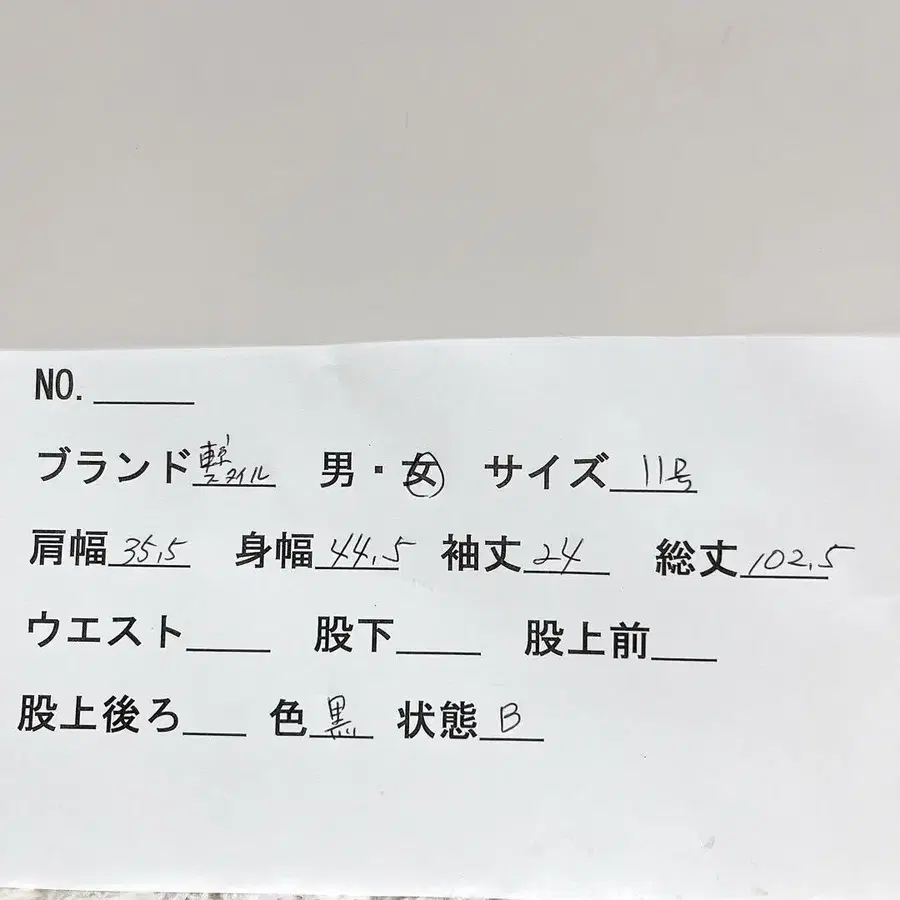 NO.
ブランド スタイル 男・女 サイズ 11号
肩幅 35.5 身幅 44.5 袖丈 24 総丈 102.5
ウエスト 股下 股上前
股上後ろ 色 黒 状態 B